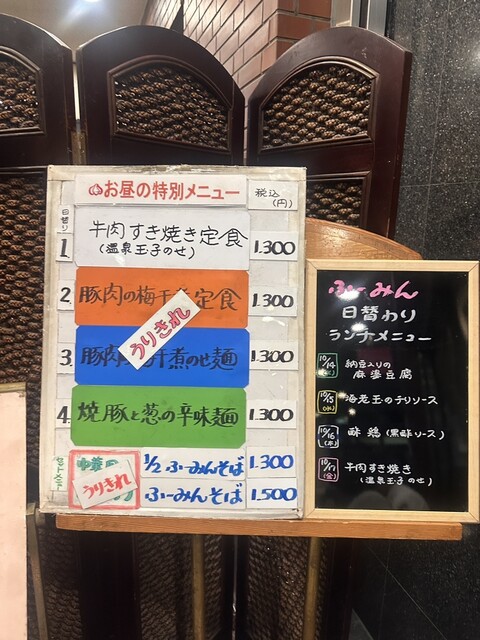 お昼の特別メニュー
税込(円)
日替り
1. 牛肉すき焼き定食 1.300
(温泉玉子のせ)
2. 豚肉の梅干煮定食 1.300
うりきれ
3. 豚肉 汁煮のせ麺 1.300
4. 焼豚と葱の辛味麺 1.300
セットメニュー
うりきれ
1/2 ふーみんそば 1.300
ふーみんそば 1.500
ふーみん
日替わり
ランチメニュー
10/14 納豆入りの
麻婆豆腐
10/15 (水) 海老玉のチリソース
10/16 (木) 酥鶏 (黒酢ソース)
10/17 (金) 牛肉すき焼き
(温泉玉子のせ)